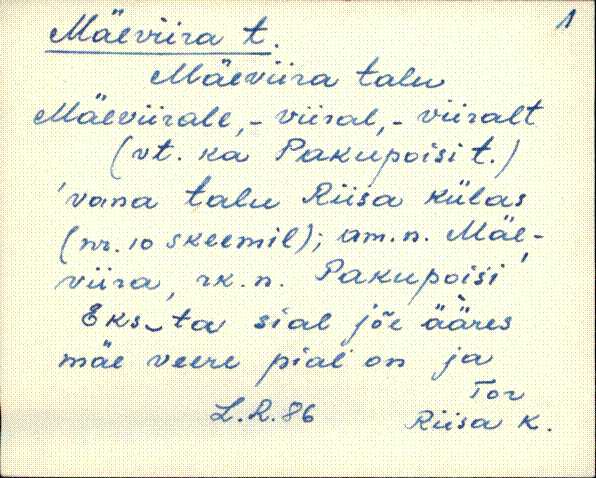 1
Mäeviira t.
Mäeviira talu
Mäeviirale, - viiral, - viiralt
(vt. ka Pakupoisi t.)
'vana talu Riisa külas
(nr. 10 skeemil); am.n. Mäe-
viira, rk.n. Pakupoisi'
Eks‿ta sial jõe ääres
mäe veere pial on ja
Tor
L.R.86 Riisa k.